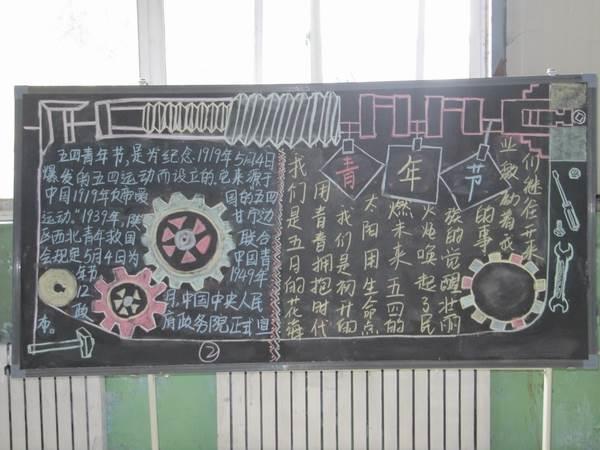 五四青年节,是为纪念1919年5月4日
爆发的五四运动而设立的,它来源于
中国1919年反帝爱 国的五四
运动。"1939年,陕 甘宁边
区西北青年救国 联合
会规定5月4日为 中国青
年节 1949年
12 月,中国中央人民
政 府政务院正式宣
布。
②
青年节
我们是五月的花海
用青春拥抱时代
我们是初升的
太阳用生命点
燃未来五四的
火炬唤起了民
族的觉醒壮丽
的事
业激励着我
们继往开来